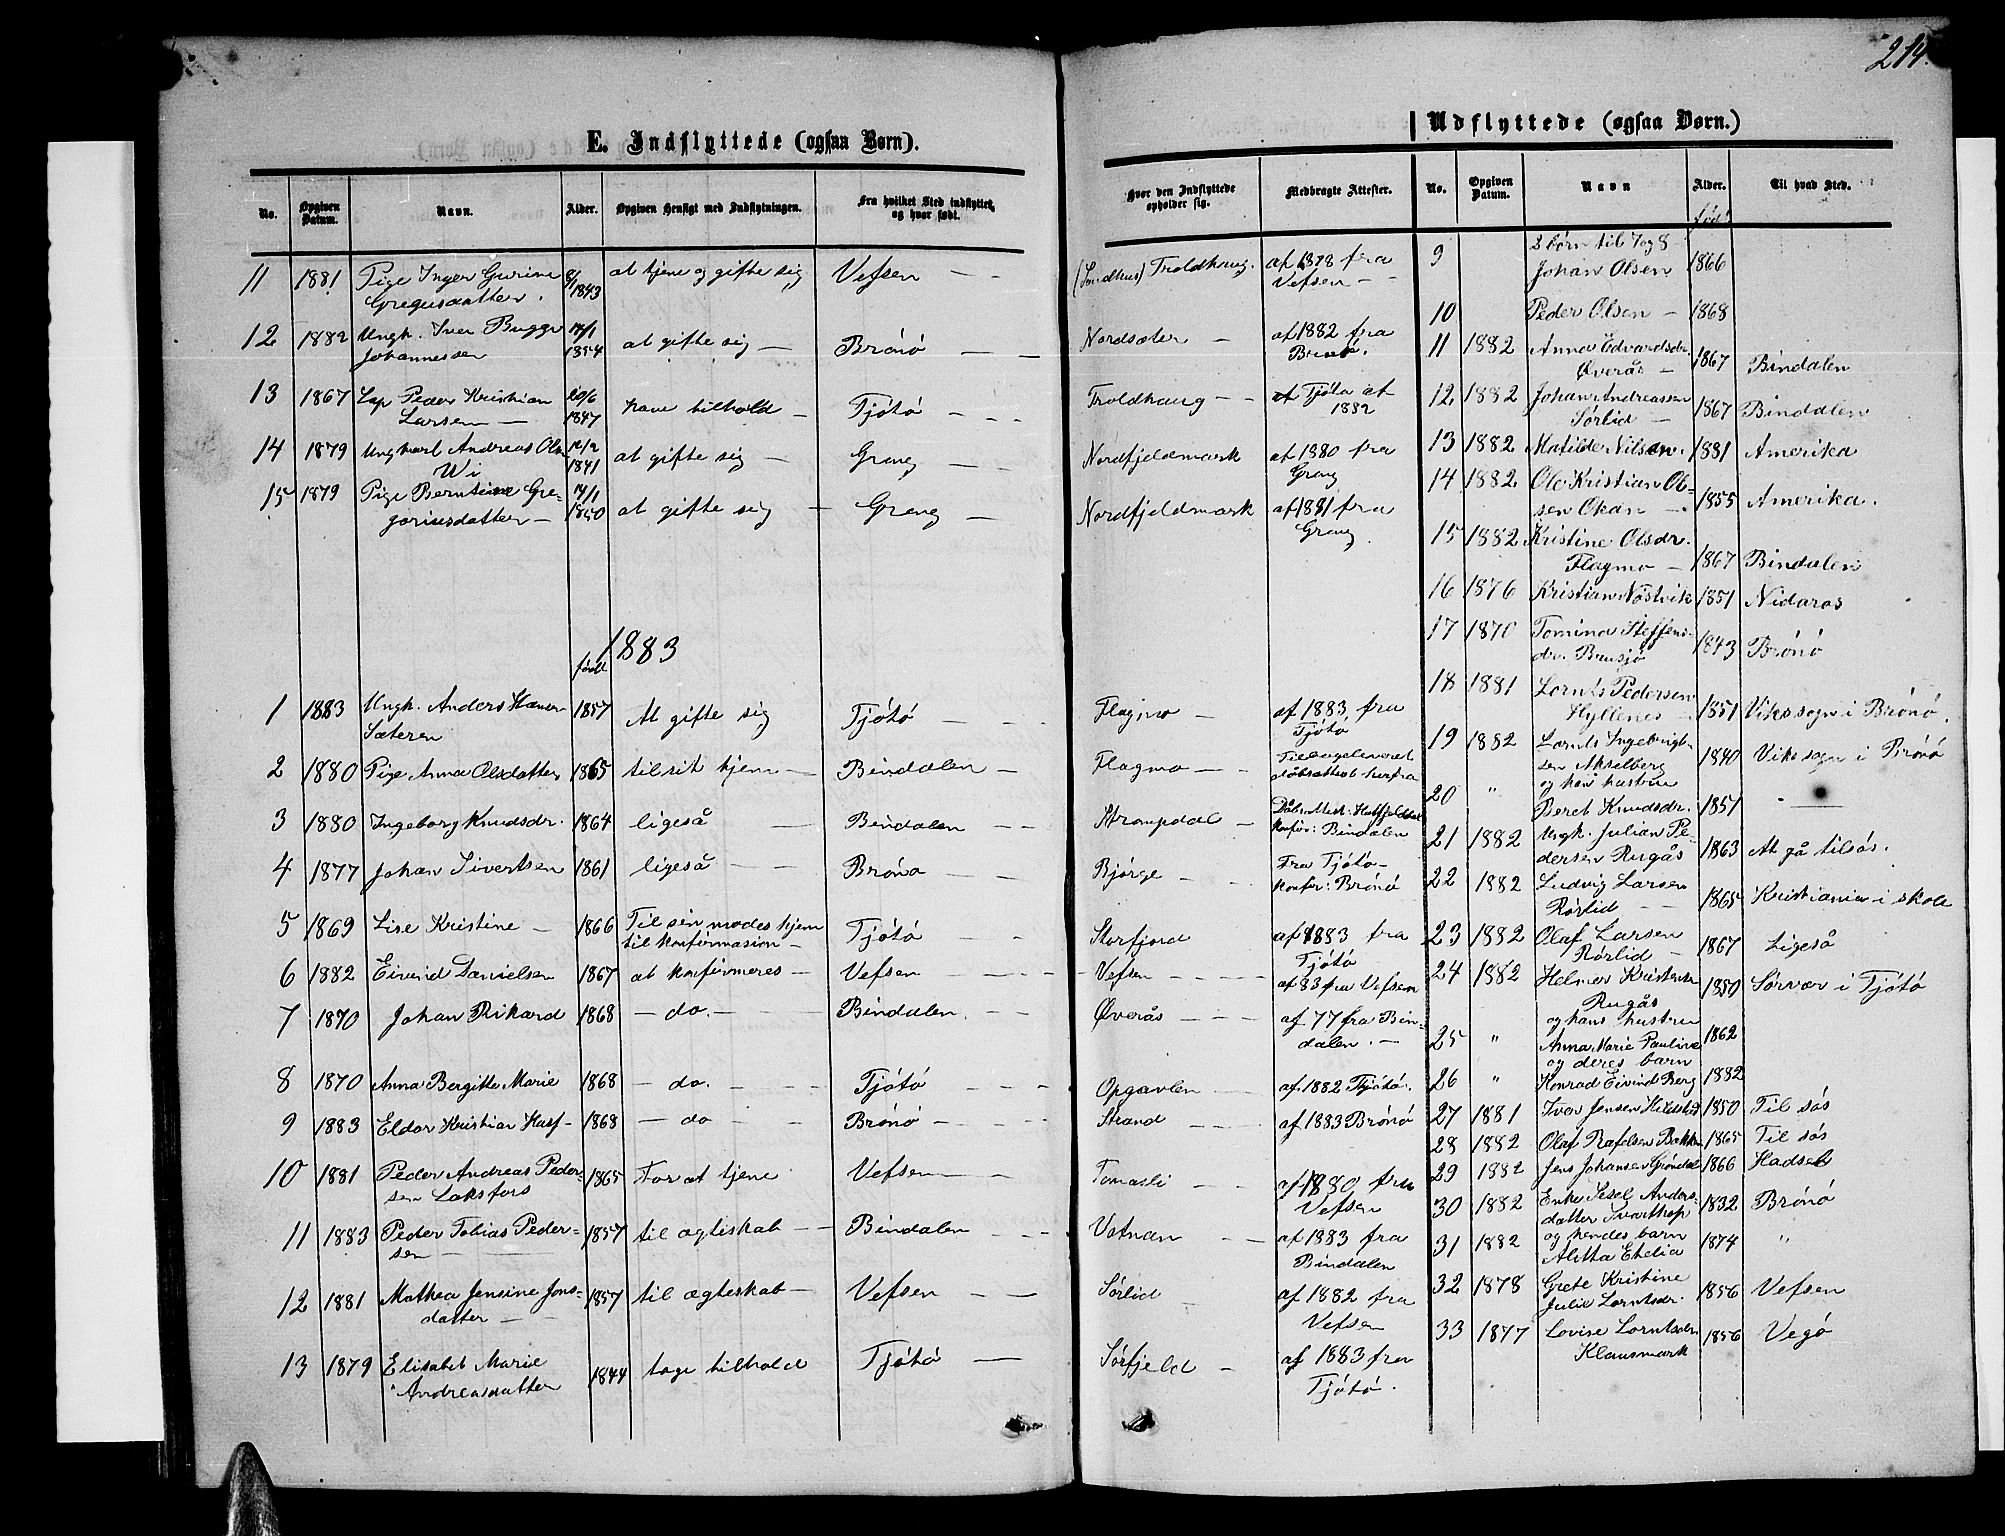 214.
E. Indflyttede (ogsaa Børn).
No. Opgiven Datum. Navn. Alder. Opgiven Hensigt med Indflytningen. Fra hvilket Sted indflyttet, og hvor født.
11 1881 Pige Inger Gurine 8/1 1843 at tjene og gifte sig Vefsen
Gregusdatter.
12 1882 Ungk. Iver Bugge 17/1 1854 at gifte sig Brönö
Johannessen
13 1867 Lap Peder Kristian 20/6 1847 have tilhold Tjötö
Larsen
14 1879 Ungkarl Andreas Olsen 14/2 1841 at gifte sig Grong
Wi
15 1879 Pige Berntine Gre- 14/1 1850 at gifte sig Grong
goriusdatter
1883
født
1 1883 Ungk. Anders 1857 At gifte sig Tjötö
Sæteren
2 1880 Pige Anna Olsdatter 1865 til sit hjem Bindalen
3 1880 Ingeborg Knudsdr. 1864 ligeså Bindalen
4 1877 Johan Sivertsen 1861 ligeså Brönö
5 1869 Lise Kristine 1866 Til sin moders hjem Tjötö
til konfirmasion
6 1882 Eivind Danielsen 1867 at konfirmeres Vefsen
7 1870 Johan Rikard 1868 do. Bindalen
8 1870 Anna Bergitte Marie 1868 do. Tjötö
9 1883 Eldor Kristian Hasf- 1868 do Brönö
10 1881 Peder Andreas Peder- 1865 For at tjene Vefsen
sen Laksfors
11 1883 Peder Tobias Peder- 1857 til ægteskab Bindalen
sen
12 1881 Mathea Jensine Jons- 1857 til ægteskab Vefsen
datter
13 1879 Elisabet Marie 1844 tage tilhold Tjötö
Andreasdatter
Udflyttede (ogsaa Børn.)
Hvor den Indflyttede opholder sig. Medbragte Attester. No. Opgiven Datum. Navn Alder. Til hvad Sted.
født
(Sındhus) Troldhaug. af 1878 fra
Vefsen
Nordsæter af 1882 fra
Brönö.
Troldhaug Tjöta af
1882
Nordfjeldmark af 1880 fra
Grong
Nordfjeldmark af 1881 fra
Grong
Flagmo af 1883 fra
Tjötö
Flagmo Tilbageleveret
dåbsattest herfra
Strompdal Dåbs-Attest: Hatfjelddal
konfir: Bindalen
Bjørge Fra Tjötö
konfir: Brönö
Storfjord af 1883 fra
Tjötö
Vefsen af 83 fra Vefsen
Øverås af 77 fra Bin-
dalen.
Opgavlen af 1882 Tjötö.
Strand af 1883 Brönö
Tomasli af 1880 fra
Vefsen
Vatnan af 1883 fra
Bindalen
Sörlid af 1882 fra
Vefsen
Sörfjeld af 1883 fra
Tjötö.
2 börn til 7 og 8
9 Johan Olsen 1866
10 Peder Olsen 1868
11 1882 Anna Edvardsdr.
Øverås 1867 Bindalen
12 1882 Johan Andreassen
Sørlid 1867 Bindalen
13 1882 Matilde Nilsen. 1881 Amerika
14 1882 Ole Kristian Ol-
sen Okan 1855 Amerika.
15 1882 Kristine Olsdr.
Flagmo 1867 Bindalen
16 1876 Kristian Nöstvik 1851 Nidaros
17 1870 Tomina Steffens-
dr. Brusjö 1843 Brönö
18 1881 Lornts Pedersen
Hyllenes 1851 Viks sogn i Brönö.
19 1882 Lornts Ingebrigt-
sen Akselberg 1840 Viks sogn i Brönö
og hans hustru
20 " Beret Knudsdr. 1857
21 1882 Ungk. Julian Pe-
dersen Rugås 1863 At gå tilsös.
22 1882 Ludvig Larsen
Rörlid 1865 Kristiania i skole
23 1882 Olaf Larsen
Rörlid 1867 Ligeså
24 1882 Helmer Kristensen 1850 Sörvær i Tjötö
Rugås
og hans hustru
25 " Anna Marie Pauline 1862
og deres barn
26 " Konrad Eivind Berg 1882
27 1881 Ivar Jensen 1850 Til sös
28 1882 Olaf Rafelsen Bakken 1865 Til sös
29 1882 Jens Johansen Gröndal 1866 Hadsel
30 1882 Enke Sesel Anders- 1832 Brönö
datter Svarthop
og hendes barn
31 1882 Alitta Etelia 1874 "
32 1878 Grete Kristine
Julie Lorntsdr. 1856 Vefsen
33 1877 Lovise Lorntsdr 1856 Vegö
Klausmark